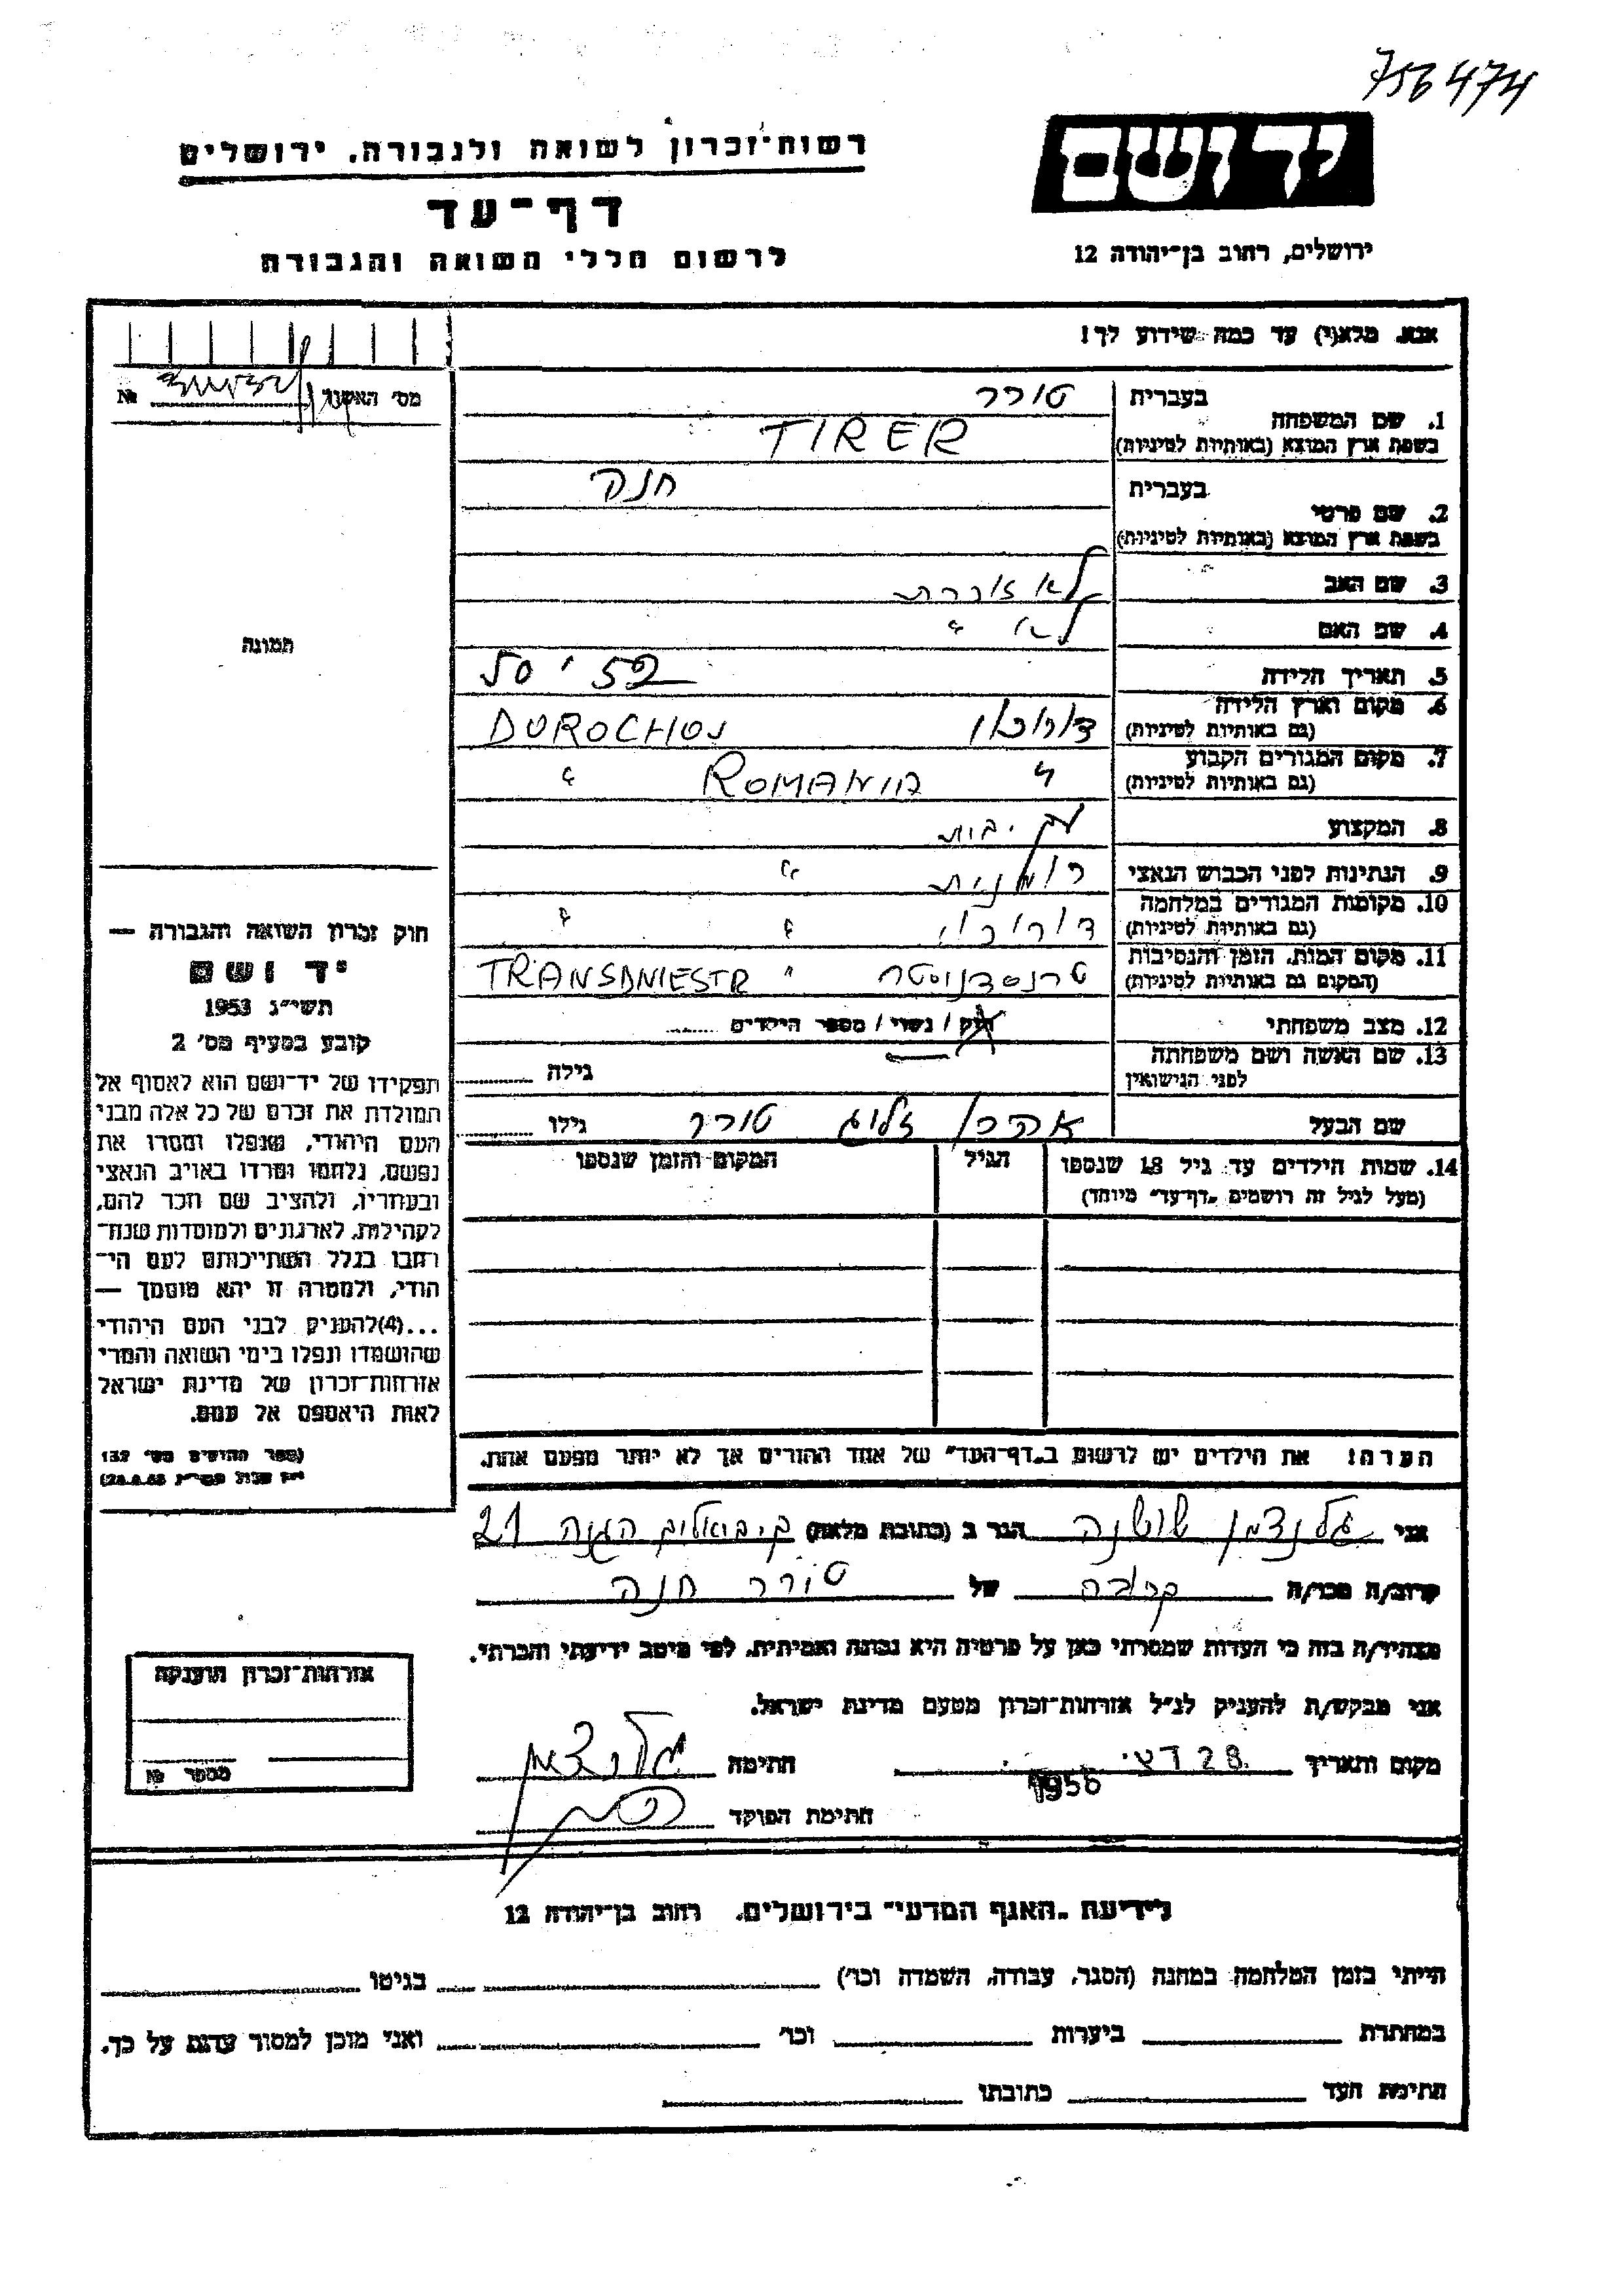 756474
רשות־זכרון לשואה ולגבורה, ירושלים
יד ושם
דף־עד
לרשום חללי השואה והגבורה
ירושלים, רחוב בן־יהודה 12
אנא, מלא(י) עד כמה שידוע לך!
מס׳ האשור №
1. שם המשפחה
בעברית טירר
בשפת ארץ המוצא (באותיות לטיניות) TIRER
2. שם פרטי
בעברית חנה
בשפת ארץ המוצא (באותיות לטיניות)
3. שם האב לא זוכרת
4. שם האם לא "
5. תאריך הלידה 50
6. מקום וארץ הלידה
(גם באותיות לטיניות) DOROCHOI
7. מקום המגורים הקבוע
(גם באותיות לטיניות) " ROMANIA "
8. המקצוע עק. בית
9. הנתינות לפני הכבוש הנאצי רומנית "
10. מקומות המגורים במלחמה
(גם באותיות לטיניות) " "
11. מקום המות, הזמן והנסיבות
(המקום גם באותיות לטיניות) טרנסדניסטר " TRANSDNIESTR
12. מצב משפחתי רוק / נשוי / מספר הילדים
13. שם האשה ושם משפחתה
לפני הנישואין גילה
שם הבעל אהרן זליג טירר גילו
14. שמות הילדים עד גיל 18 שנספו הגיל המקום והזמן שנספו
(מעל לגיל זה רושמים „דף־עד" מיוחד)
הערה! את הילדים יש לרשום ב„דף־העד" של אחד ההורים אך לא יותר מפעם אחת.
תמונה
חוק זכרון השואה והגבורה —
יד ושם
תשי״ג 1953
קובע בסעיף מס׳ 2
תפקידו של יד־ושם הוא לאסוף אל
המולדת את זכרם של כל אלה מבני
העם היהודי, שנפלו ומסרו את
נפשם, נלחמו ומרדו באויב הנאצי
ובעוזריו, ולהציב שם וזכר להם,
לקהילות, לארגונים ולמוסדות שנח־
רבו בגלל השתייכותם לעם הי־
הודי, ולמטרה זו יהא מוסמך —
...(4) להעניק לבני העם היהודי
שהושמדו ונפלו בימי השואה והמרי
אזרחות־זכרון של מדינת ישראל
לאות היאספם אל עמם.
(ספר החוקים מס׳ 132
אני גלנצמן שושנה הגר ב (כתובת מלאה) ק. ביאליק הגנה 21
קרוב/ה מכר/ה קרובה של טירר חנה
מצהיר/ה בזה כי העדות שמסרתי כאן על פרטיה היא נכונה ואמיתית, לפי מיטב ידיעתי והכרתי.
אני מבקש/ת להעניק לנ״ל אזרחות־זכרון מטעם מדינת ישראל.
מקום ותאריך 28 דצ׳ 1956 חתימה גלנצמן
חתימת הפוקד
אזרחות־זכרון הוענקה
מספר №
לידיעת „האגף המדעי" בירושלים, רחוב בן־יהודה 12
הייתי בזמן המלחמה במחנה (הסגר, עבודה, השמדה וכו׳) בגיטו
במחתרת ביערות וכו׳ ואני מוכן למסור עדות על כך.
חתימת העד כתובתו